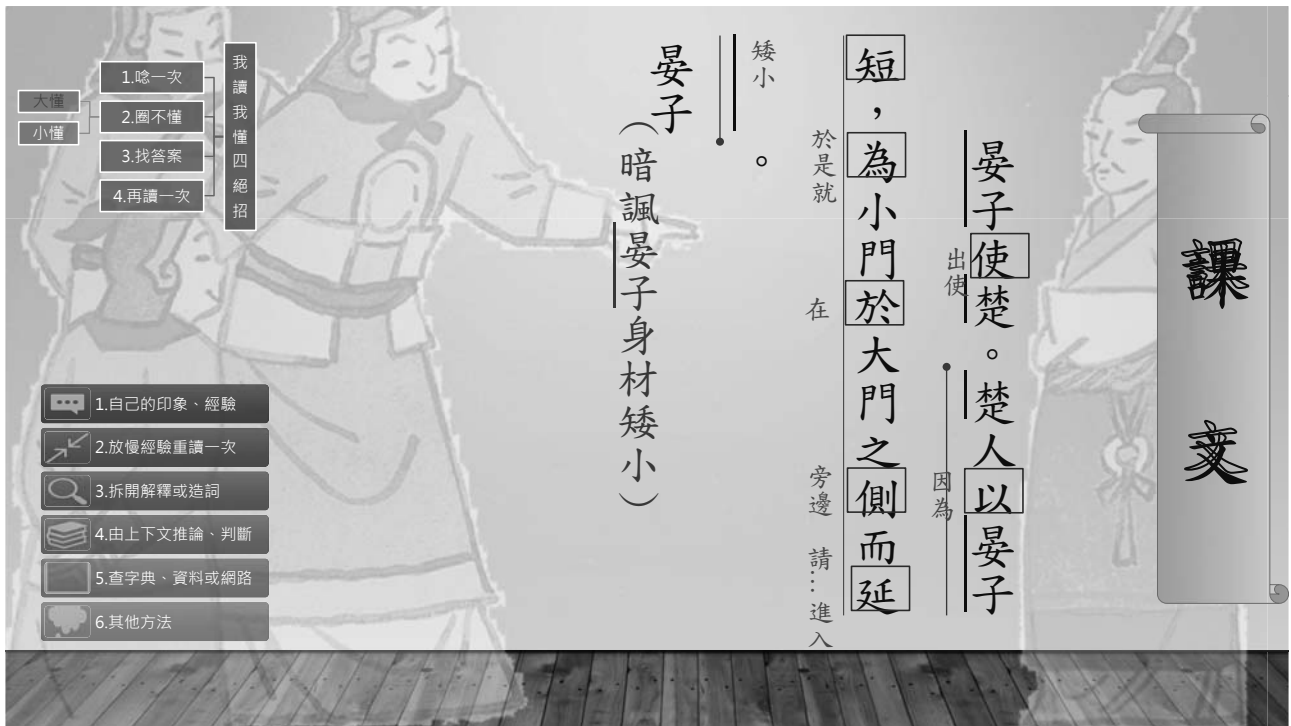 課文
晏子使楚。楚人以晏子
出使
因為
短，為小門於大門之側而延
於是就
在
旁邊
請…進入
晏子。
矮小
（暗諷晏子身材矮小）
我讀我懂四絕招
1.唸一次
2.圈不懂
3.找答案
4.再讀一次
大懂
小懂
1.自己的印象、經驗
2.放慢經驗重讀一次
3.拆開解釋或造詞
4.由上下文推論、判斷
5.查字典、資料或網路
6.其他方法